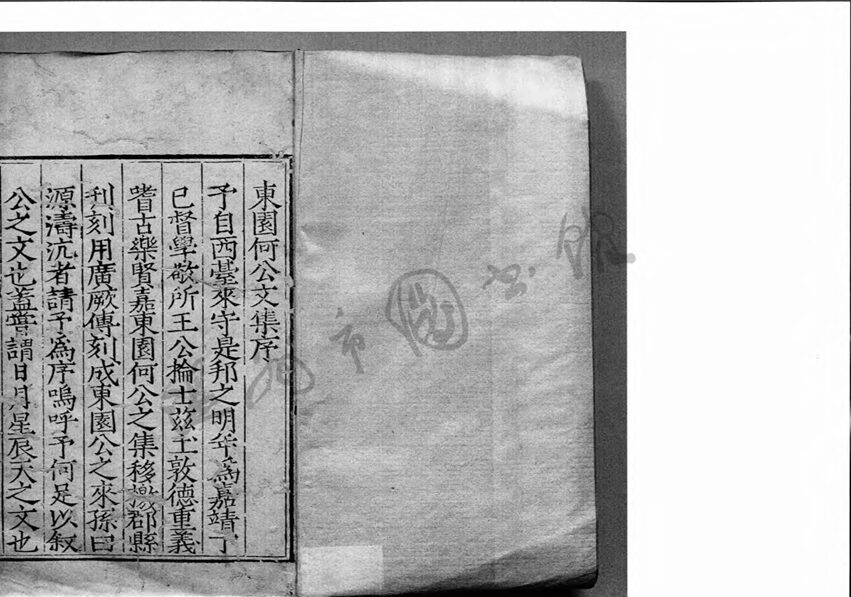 東園何公文集序
予自西臺來守是邦之明年為嘉靖丁
巳督學敬所王公掄士茲土敦德重義
嗜古樂賢嘉東園何公之集移檄郡縣
刊刻用廣厥傳刻成東園公之來孫曰
源濤沆者請予為序嗚呼予何足以叙
公之文也盖嘗謂日月星辰天之文也